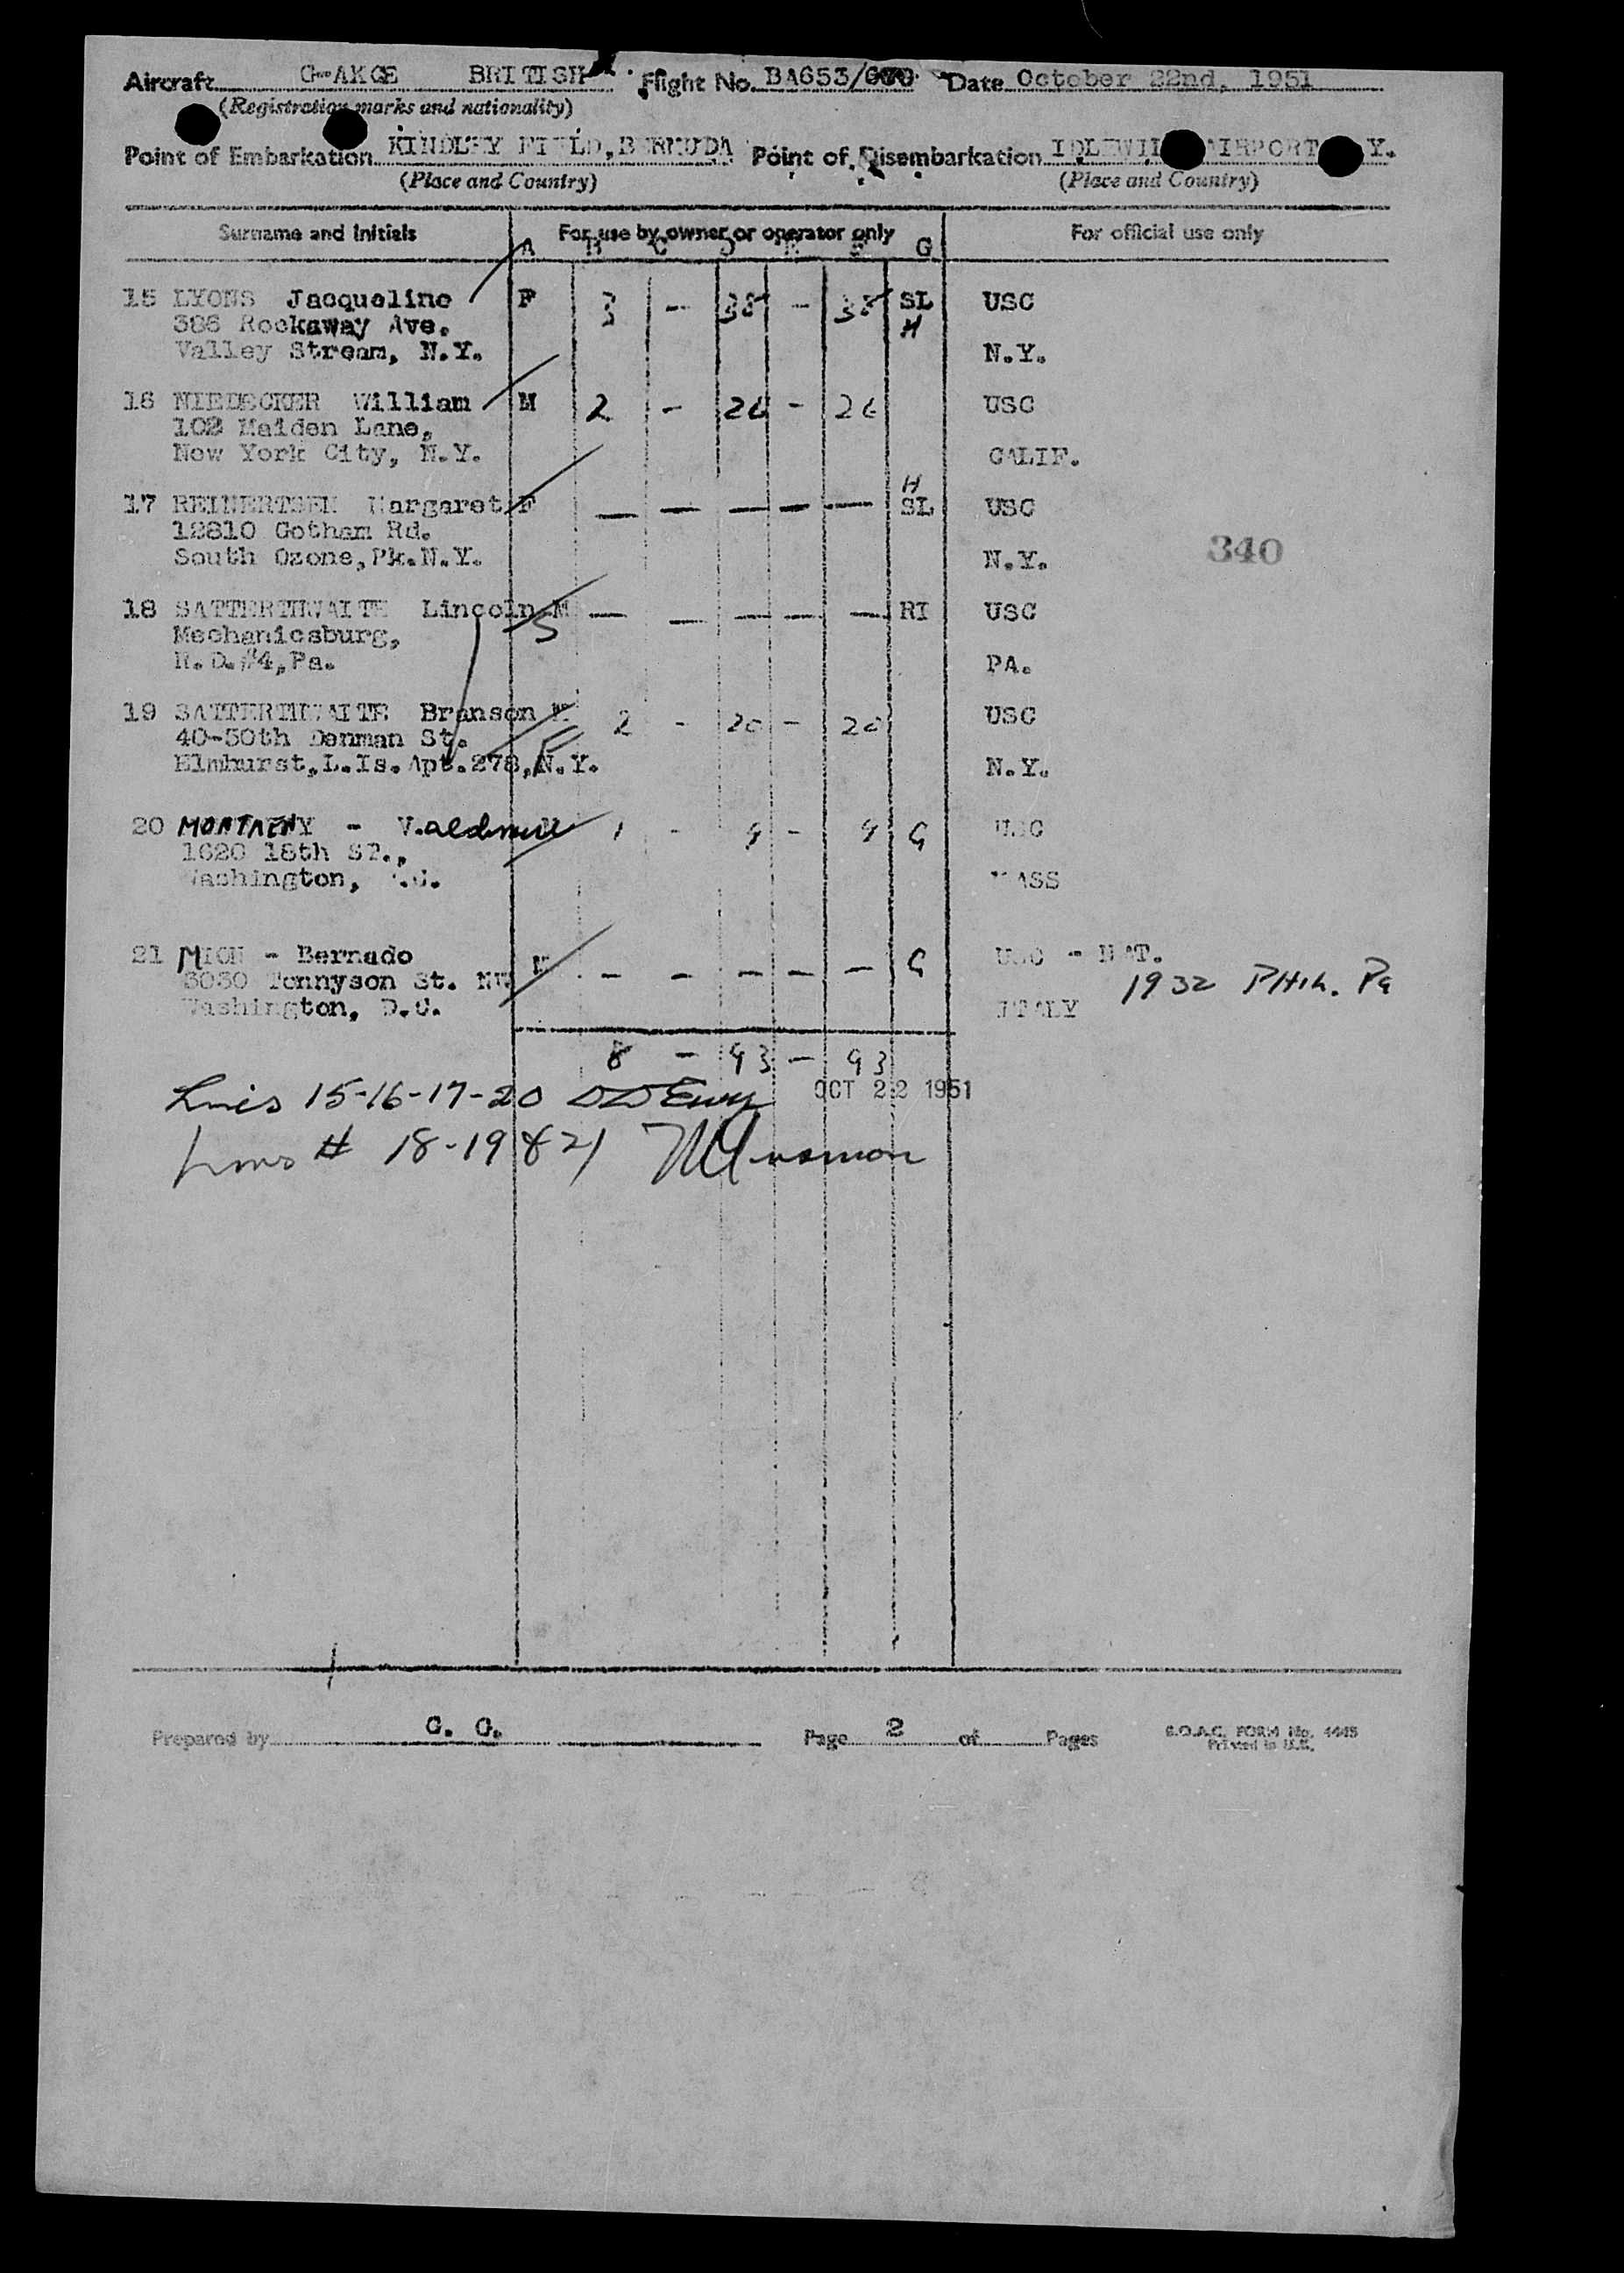 Aircraft G-AKGE BRITISH Flight No. BA653/ Date October 22nd, 1951
(Registration marks and nationality)
Point of Embarkation KINDLEY FIELD, BERMUDA Point of Disembarkation IDLEWIL AIRPORT Y.
(Place and Country) (Place and Country)
Surname and Initials For use by owner or operator only For official use only
A B C D E F G
15 LYONS Jacqueline F 3 - 38 - 38 SL USC
386 Rockaway Ave. H
Valley Stream, N.Y. N.Y.
16 NIEDECKER William M 2 - 26 - 26 USC
102 Maiden Lane,
New York City, N.Y. CALIF.
H
17 REINERTSEN Margaret F — — — — — SL USC
12810 Gotham Rd.
South Ozone, Pk. N.Y. N.Y. 340
18 SATTERTHWAITE Lincoln M — — — — — RI USC
Mechanicsburg, S
R.D.#4, Pa. PA.
19 SATTERTHWAITE Branson M 2 - 20 - 20 USC
40-50th Denman St.
Elmhurst, L.Is. Apt.278, N.Y. N.Y.
20 MONTAENY - 1 - 9 - 9 G USC
1620 18th ST.,
Washington, D.C. MASS
21 MION - Bernado M — — — — — G USC - NAT.
3030 Tennyson St. NW 1932 PHIL. Pa
Washington, D.C. ITALY
8 - 93 - 93
Lines 15-16-17-20 OCT 22 1951
Lines # 18-19 & 21
Prepared by G. G. Page 2 of Pages B.O.A.C. FORM No. 4445
Printed in U.K.